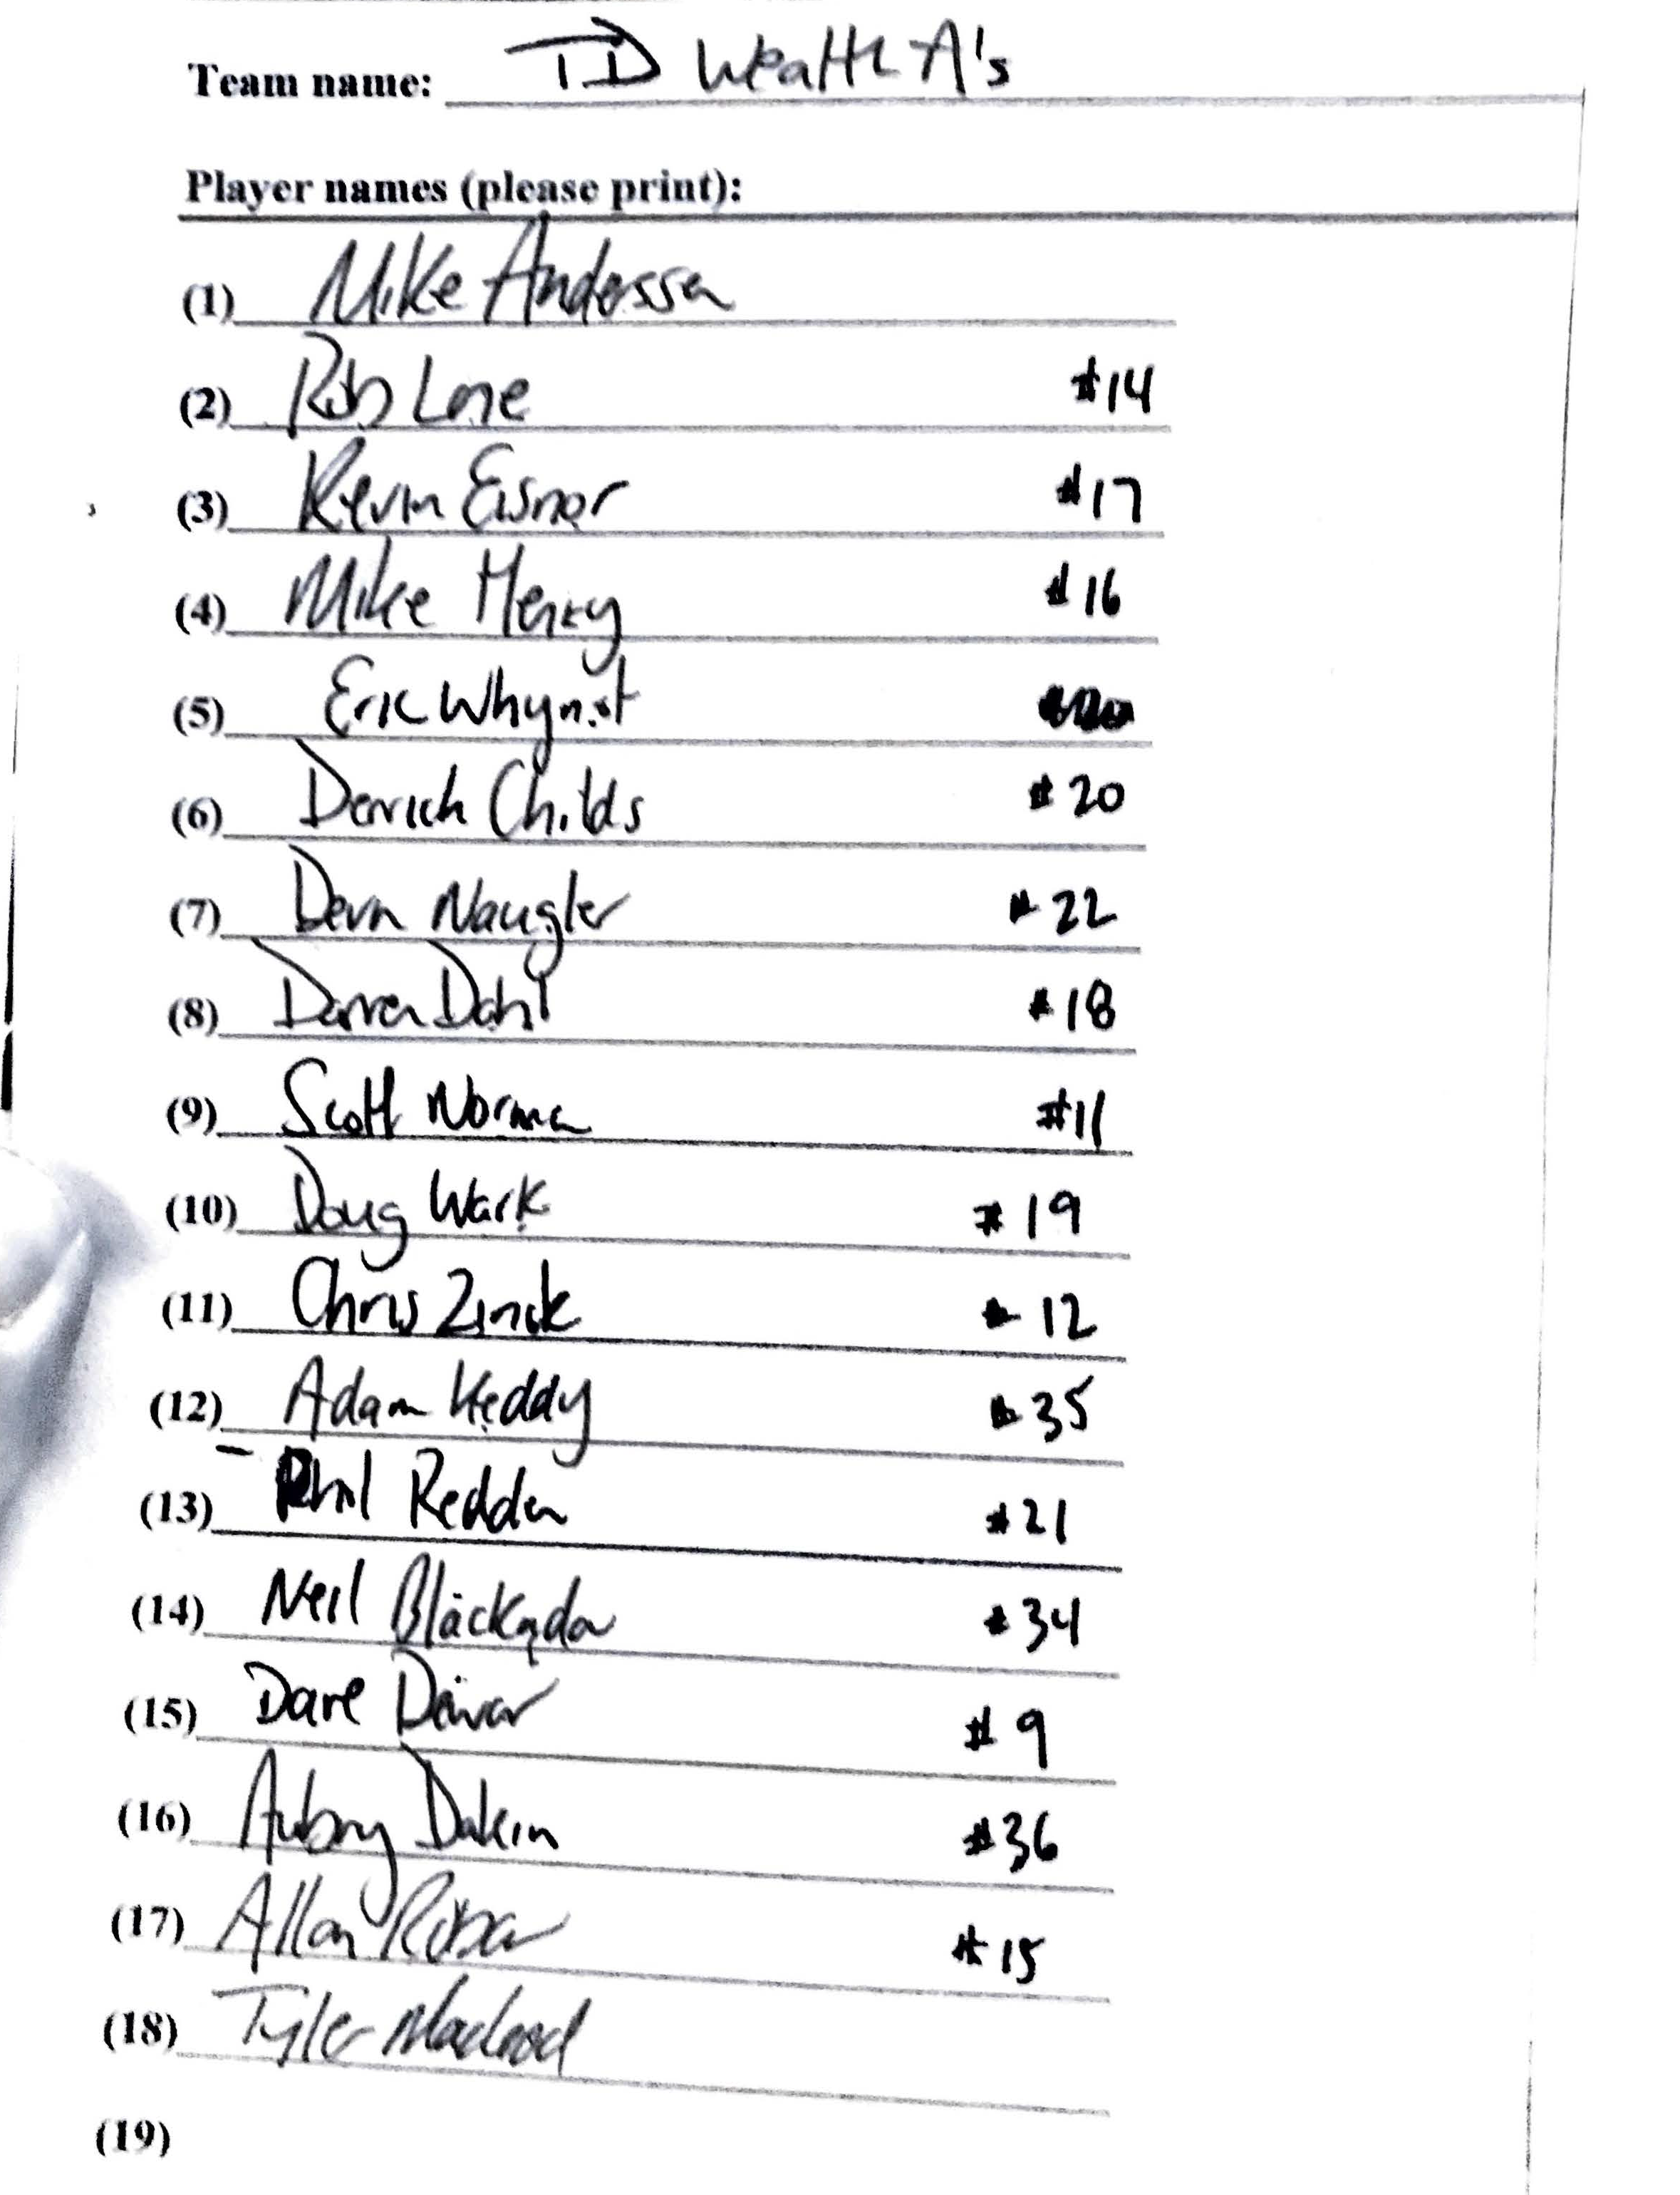 Team name: TD Wealth A's
Player names (please print):
(1) Mike Anderson
(2) Rob Lane #14
(3) Kevin Eisner #17
(4) Mike Henry #16
(5) Eric Whynot
(6) Derrick Childs #20
(7) Devn Naugler #22
(8) Darren Dahl #18
(9) Scott Norman #11
(10) Doug Wark #19
(11) Chris Zinck #12
(12) Adam Keddy #35
(13) Phil Redden #21
(14) Neil Blackadar #34
(15) Dave Dewar #9
(16) Aubry Dakin #36
(17) Allan Robar #15
(18) Tyler Macleod
(19)